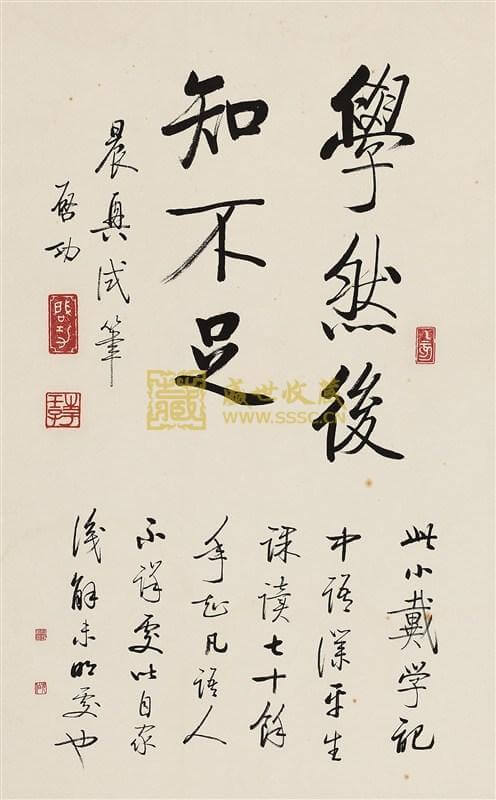 學然後
知不足
晨興試筆
启功
此小戴学記
中語僕平生
課讀七十餘
年凡語人
不詳處自家
淺解未明處也
盛世收藏
WWW.SSSC.CN